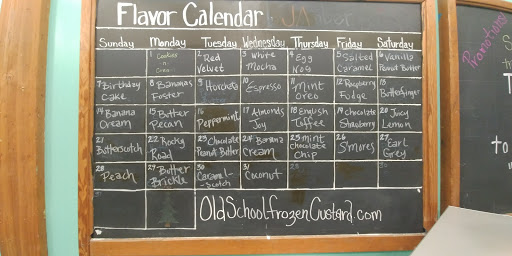 Flavor Calendar
Sunday Monday Tuesday Wednesday Thursday Friday Saturday
1 Cookies n Crea 2 Red Velvet 3 White Mocha 4 Egg Nog 5 Salted Caramel 6 Vanilla Peanut Butter
7 Birthday Cake 8 Bananas Foster 9 Horchata 10 Espresso 11 Mint Oreo 12 Raspberry Fudge 13 Butterfinger
14 Banana Cream 15 Butter Pecan 16 Peppermint 17 Almonds Joy 18 English Toffee 19 Chocolate Strawberry 20 Juicy Lemon
21 Butterscotch 22 Rocky Road 23 Chocolate Peanut Butter 24 Banana Cream 25 mint Chocolate Chip 26 S'mores 27 Earl Grey
28 Peach 29 Butter Brickle 30 Caramel-Scotch 31 Coconut
OldSchoolfrozenCustard.com
Promotions
T
to